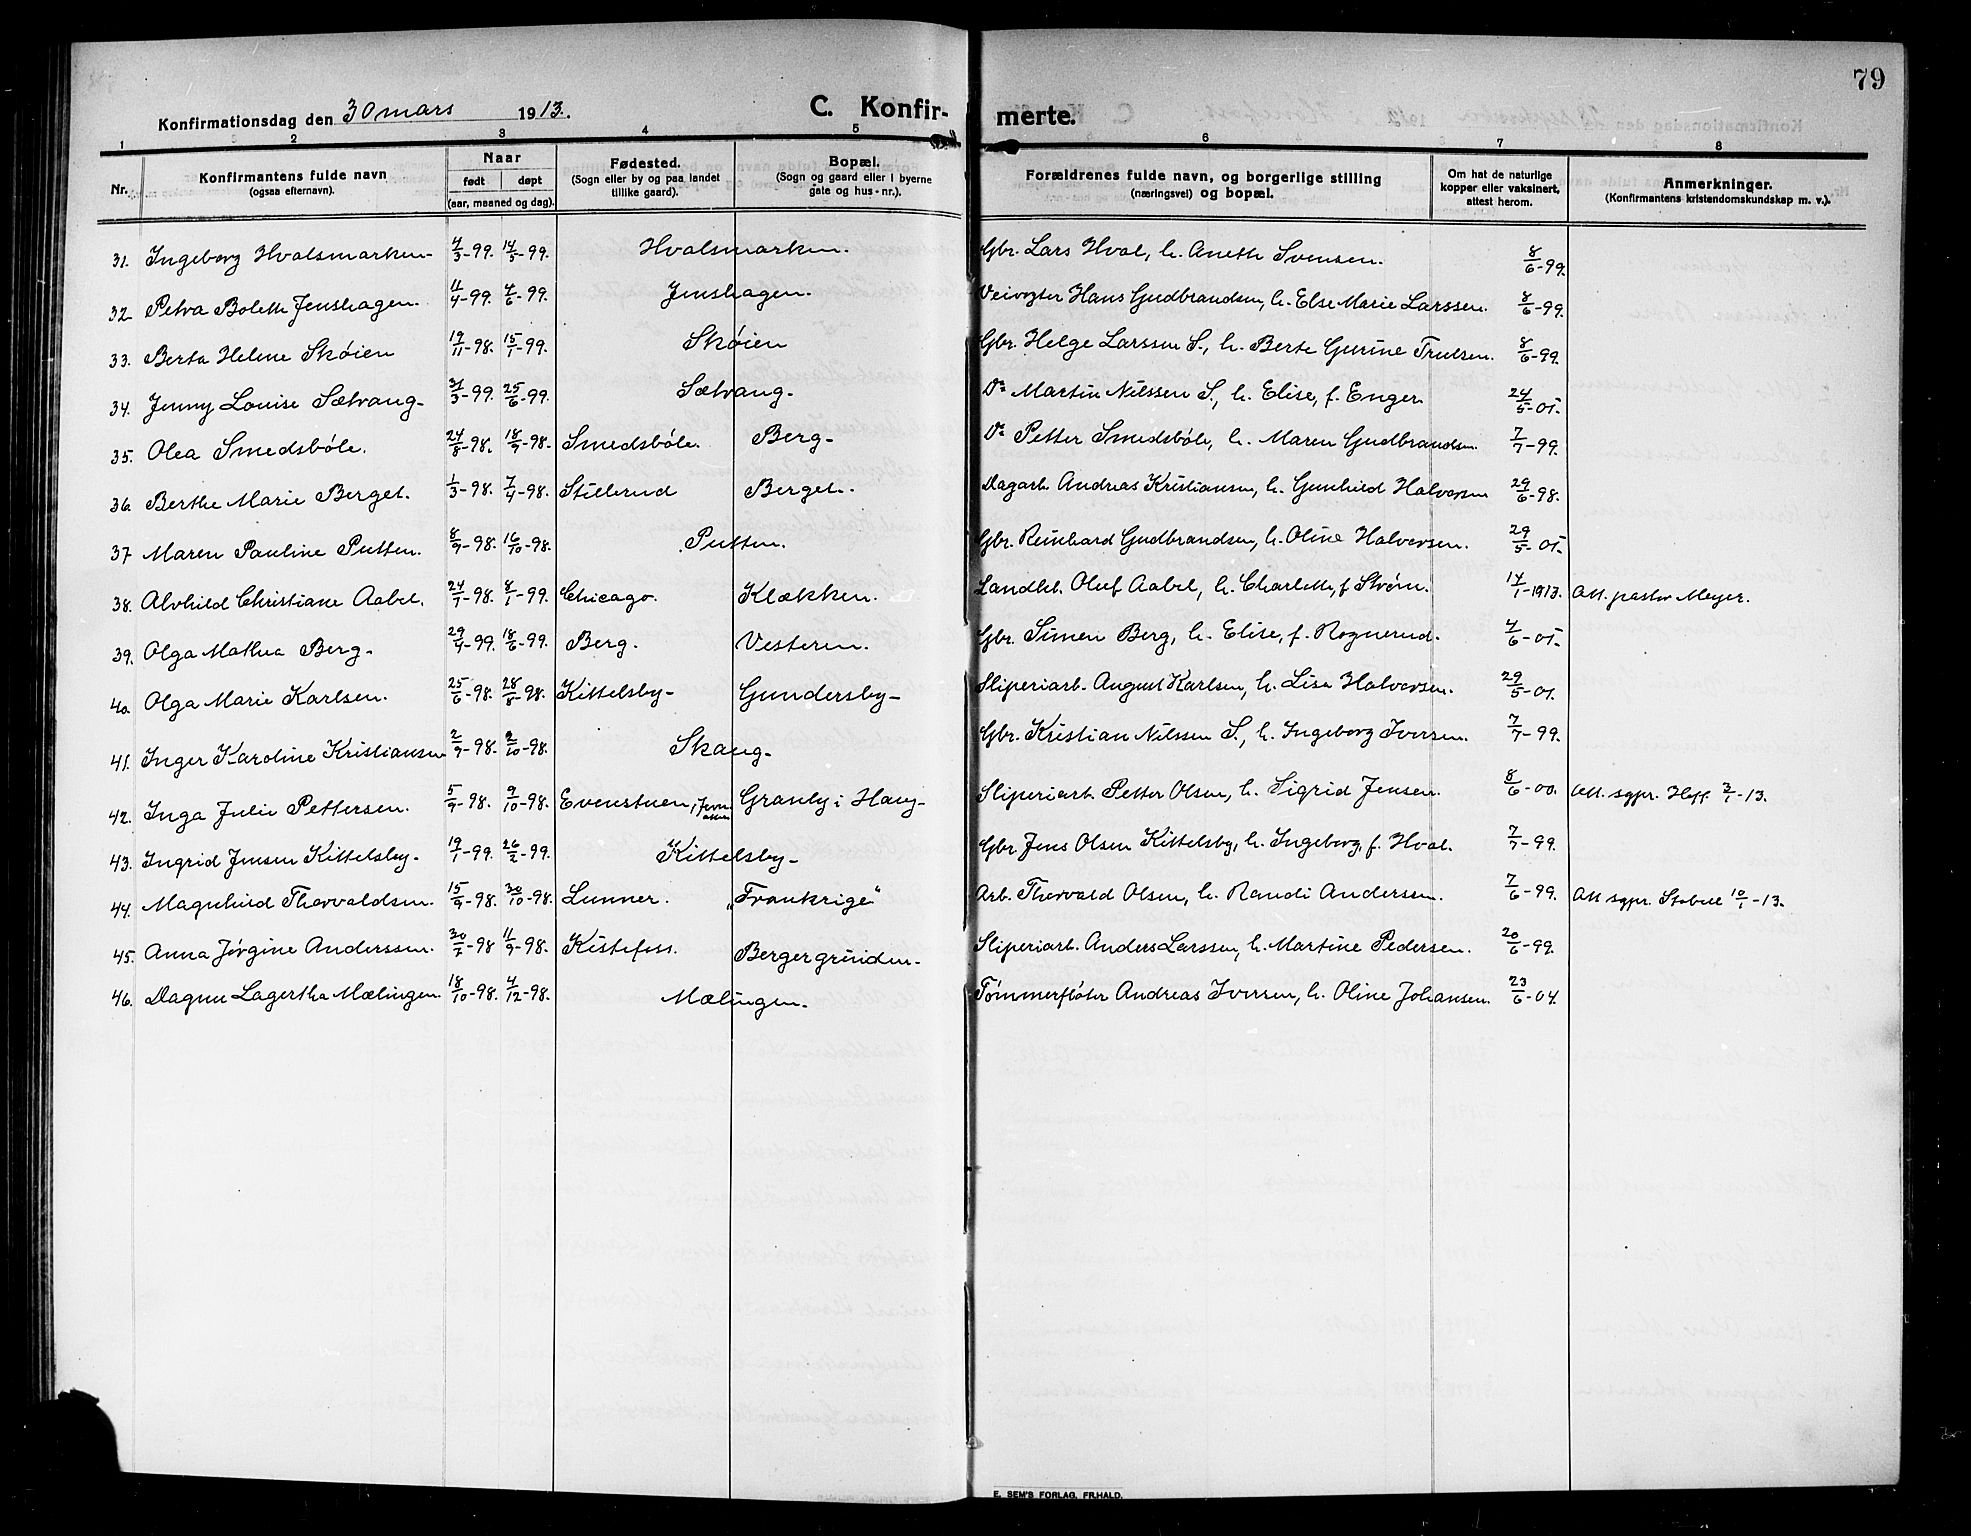 79
Konfirmationsdag den 30 mars 1913.
C. Konfir-
merte.
1 2 3 4 5 6 7 8
Nr.
Konfirmantens fulde navn
(ogsaa efternavn).
Naar
født døpt
(aar, maaned og dag).
Fødested.
(Sogn eller by og paa landet
tillike gaard).
Bopæl.
(Sogn og gaard eller i byerne
gate og hus-nr.).
Forældrenes fulde navn, og borgerlige stilling
(næringsvei) og bopæl.
Om hat de naturlige
kopper eller vaksinert,
attest herom.
Anmerkninger.
(Konfirmantens kristendomskundskap m. v.).
31. Ingeborg Hvalsmarken 4/3-99. 14/5-99. Hvalsmarken. Gbr. Lars Hval, h. Anethe Svensen. 8/6-99.
32 Petra Bolette Jenshagen. 11/4-99. 4/6-99. Jenshagen. Veivogter Hans Gudbrandsen, h. Else Marie Larssen. 8/6-99.
33. Berta Helene Skøien 19/11-98. 15/1-99. Skøien Gbr. Helge Larssen S., h. Berte Gurine Trulsen. 8/6-99.
34. Jenny Louise Sætrang 31/3-99. 25/6-99. Sætrang. Do Martin Nilssen S., h. Elise, f. Enger. 24/5-01.
35. Olea Smedsbøle. 24/8-98. 18/9-98. Smedsbøle. Berg Do Petter Smedsbøle, h. Maren Gudbrandsen 7/7-99.
36. Berthe Marie Berget. 1/3-98. 7/4-98. Stillerud Berget. Dagarb. Andreas Kristiansen, h. Gunhild Halvorsen 29/6-98.
37 Maren Pauline Putten. 8/9-98. 16/10-98. Putten. Gbr. Reinhard Gudbrandsen, h. Oline Halvorsen. 29/5-01.
38. Alvhild Christiane Aabel. 24/7-98. 8/1-99. Chicago. Klækken. Landh. Oluf Aabel, h. Charlotte, f. Strøm. 14/1-1913. Att. pastor Meyer.
39. Olga Mathea Berg 29/4-99. 18/6-99. Berg. Vesteren. Gbr. Simen Berg, h. Elise, f. Rognerud. 4/6-01
40 Olga Marie Karlsen. 25/6-98. 28/8-98. Kittelsby Gundersby Sliperiarb. August Karlsen, h. Lisa Halvorsen. 29/5-01.
41. Inger Karoline Kristiansen 2/9-98. 9/10-98. Skaug Gbr. Kristian Nilssen S., h. Ingeborg Iversen. 7/7-99.
42. Inga Julie Pettersen. 5/9-98. 9/10-98. Evenstuen, Granby i Haug Sliperiarb. Petter Olsen, h. Sigrid Jensen. 8/6-00. Att. sgpr. Hoff 3/1-13.
43. Ingrid Jensen Kittelsby 19/1-99. 26/2-99. Kittelsby Gbr. Jens Olsen Kittelsby, h. Ingeborg, f. Hval. 7/7-99.
44. Magnhild Thorvaldsen. 15/9-98. 30/10-98. Lunner. „Frankrige“ Arb. Thorvald Olsen, h. Randi Anderssen. 7/6-99. Att sgpr. Stabell 10/1-13.
45. Anna Jørgine Anderssen. 30/7-98 11/9-98. Kistefoss. Bergergrinden Sliperiarb. Anders Larssen, h. Martine Pedersen. 20/6-99.
46. Dagny Lagertha Mælingen. 18/10-98. 4/12-98. Mælingen. Tømmerfløter Andreas Iversen, h. Oline Johansen. 23/6-04.
E. SEM'S FORLAG, FR.HALD.